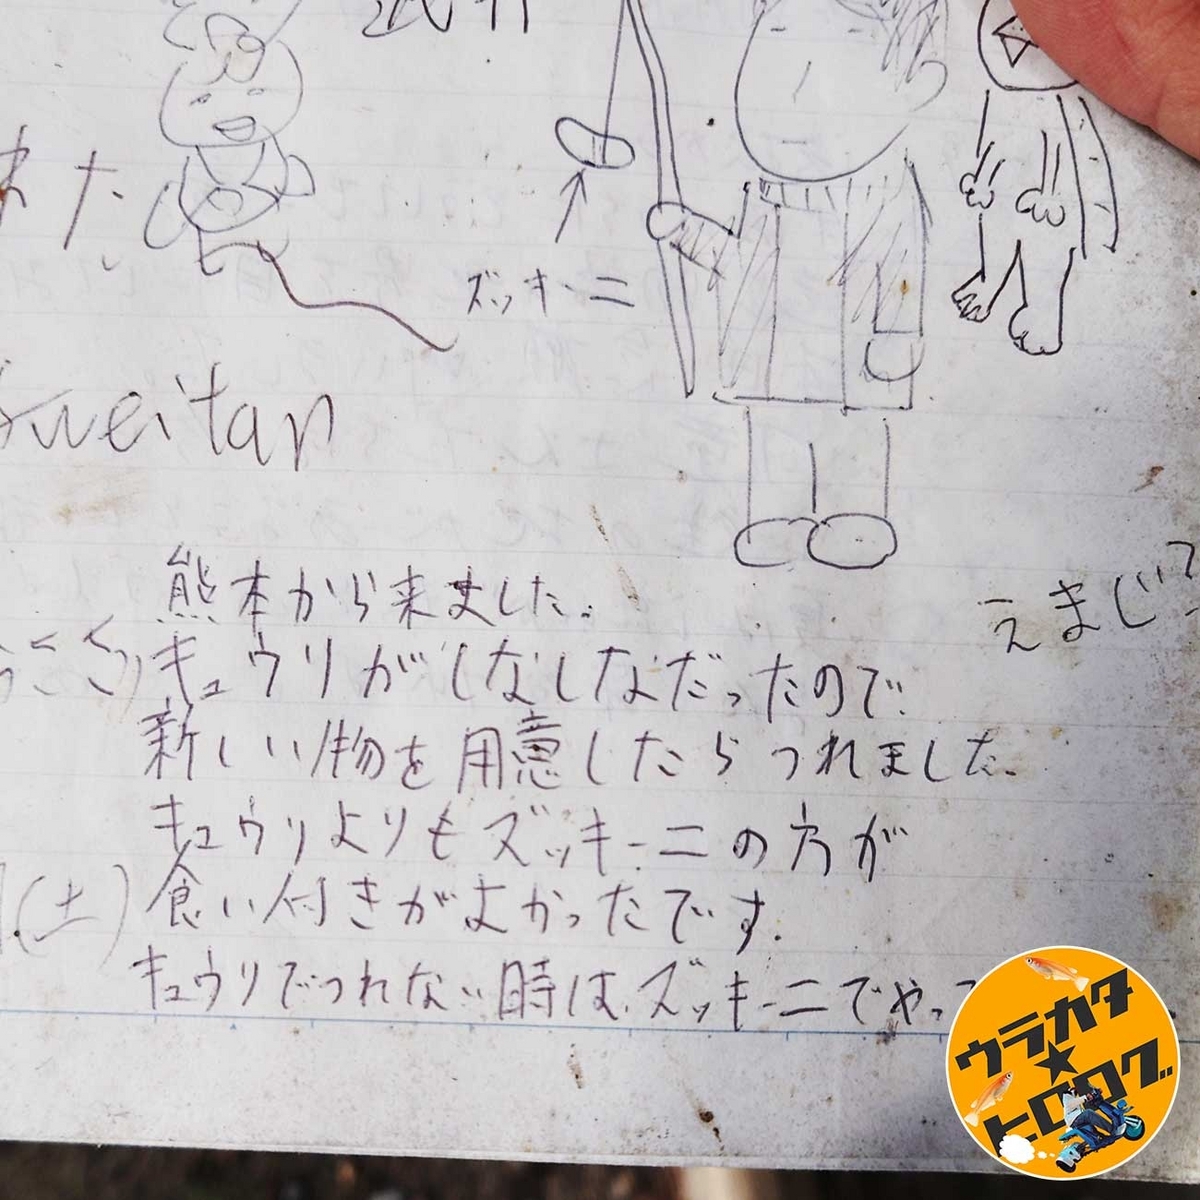 また
ズッキーニ
weitan
熊本から来ました。
えまじ
キュウリがしなしなだったので
新しい物を用意したらつれました。
キュウリよりもズッキーニの方が
(土)
食い付きがよかったです.
キュウリでつれない時はズッキーニでやっ
ウラカタ
★
ヒロログ